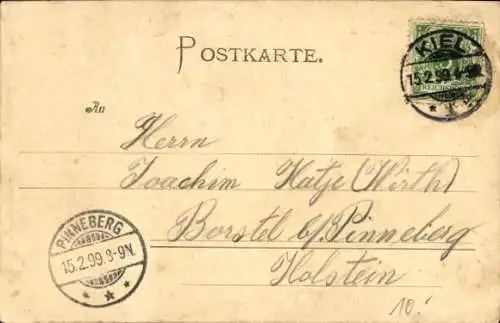 POSTKARTE.
KIEL
15.2.99.
REICHSPOST
An
Herrn
Joachim Hatje (Wirth)
Borstel b/Pinneberg
Holstein
PINNEBERG
15.2.99.8-9N.
10.